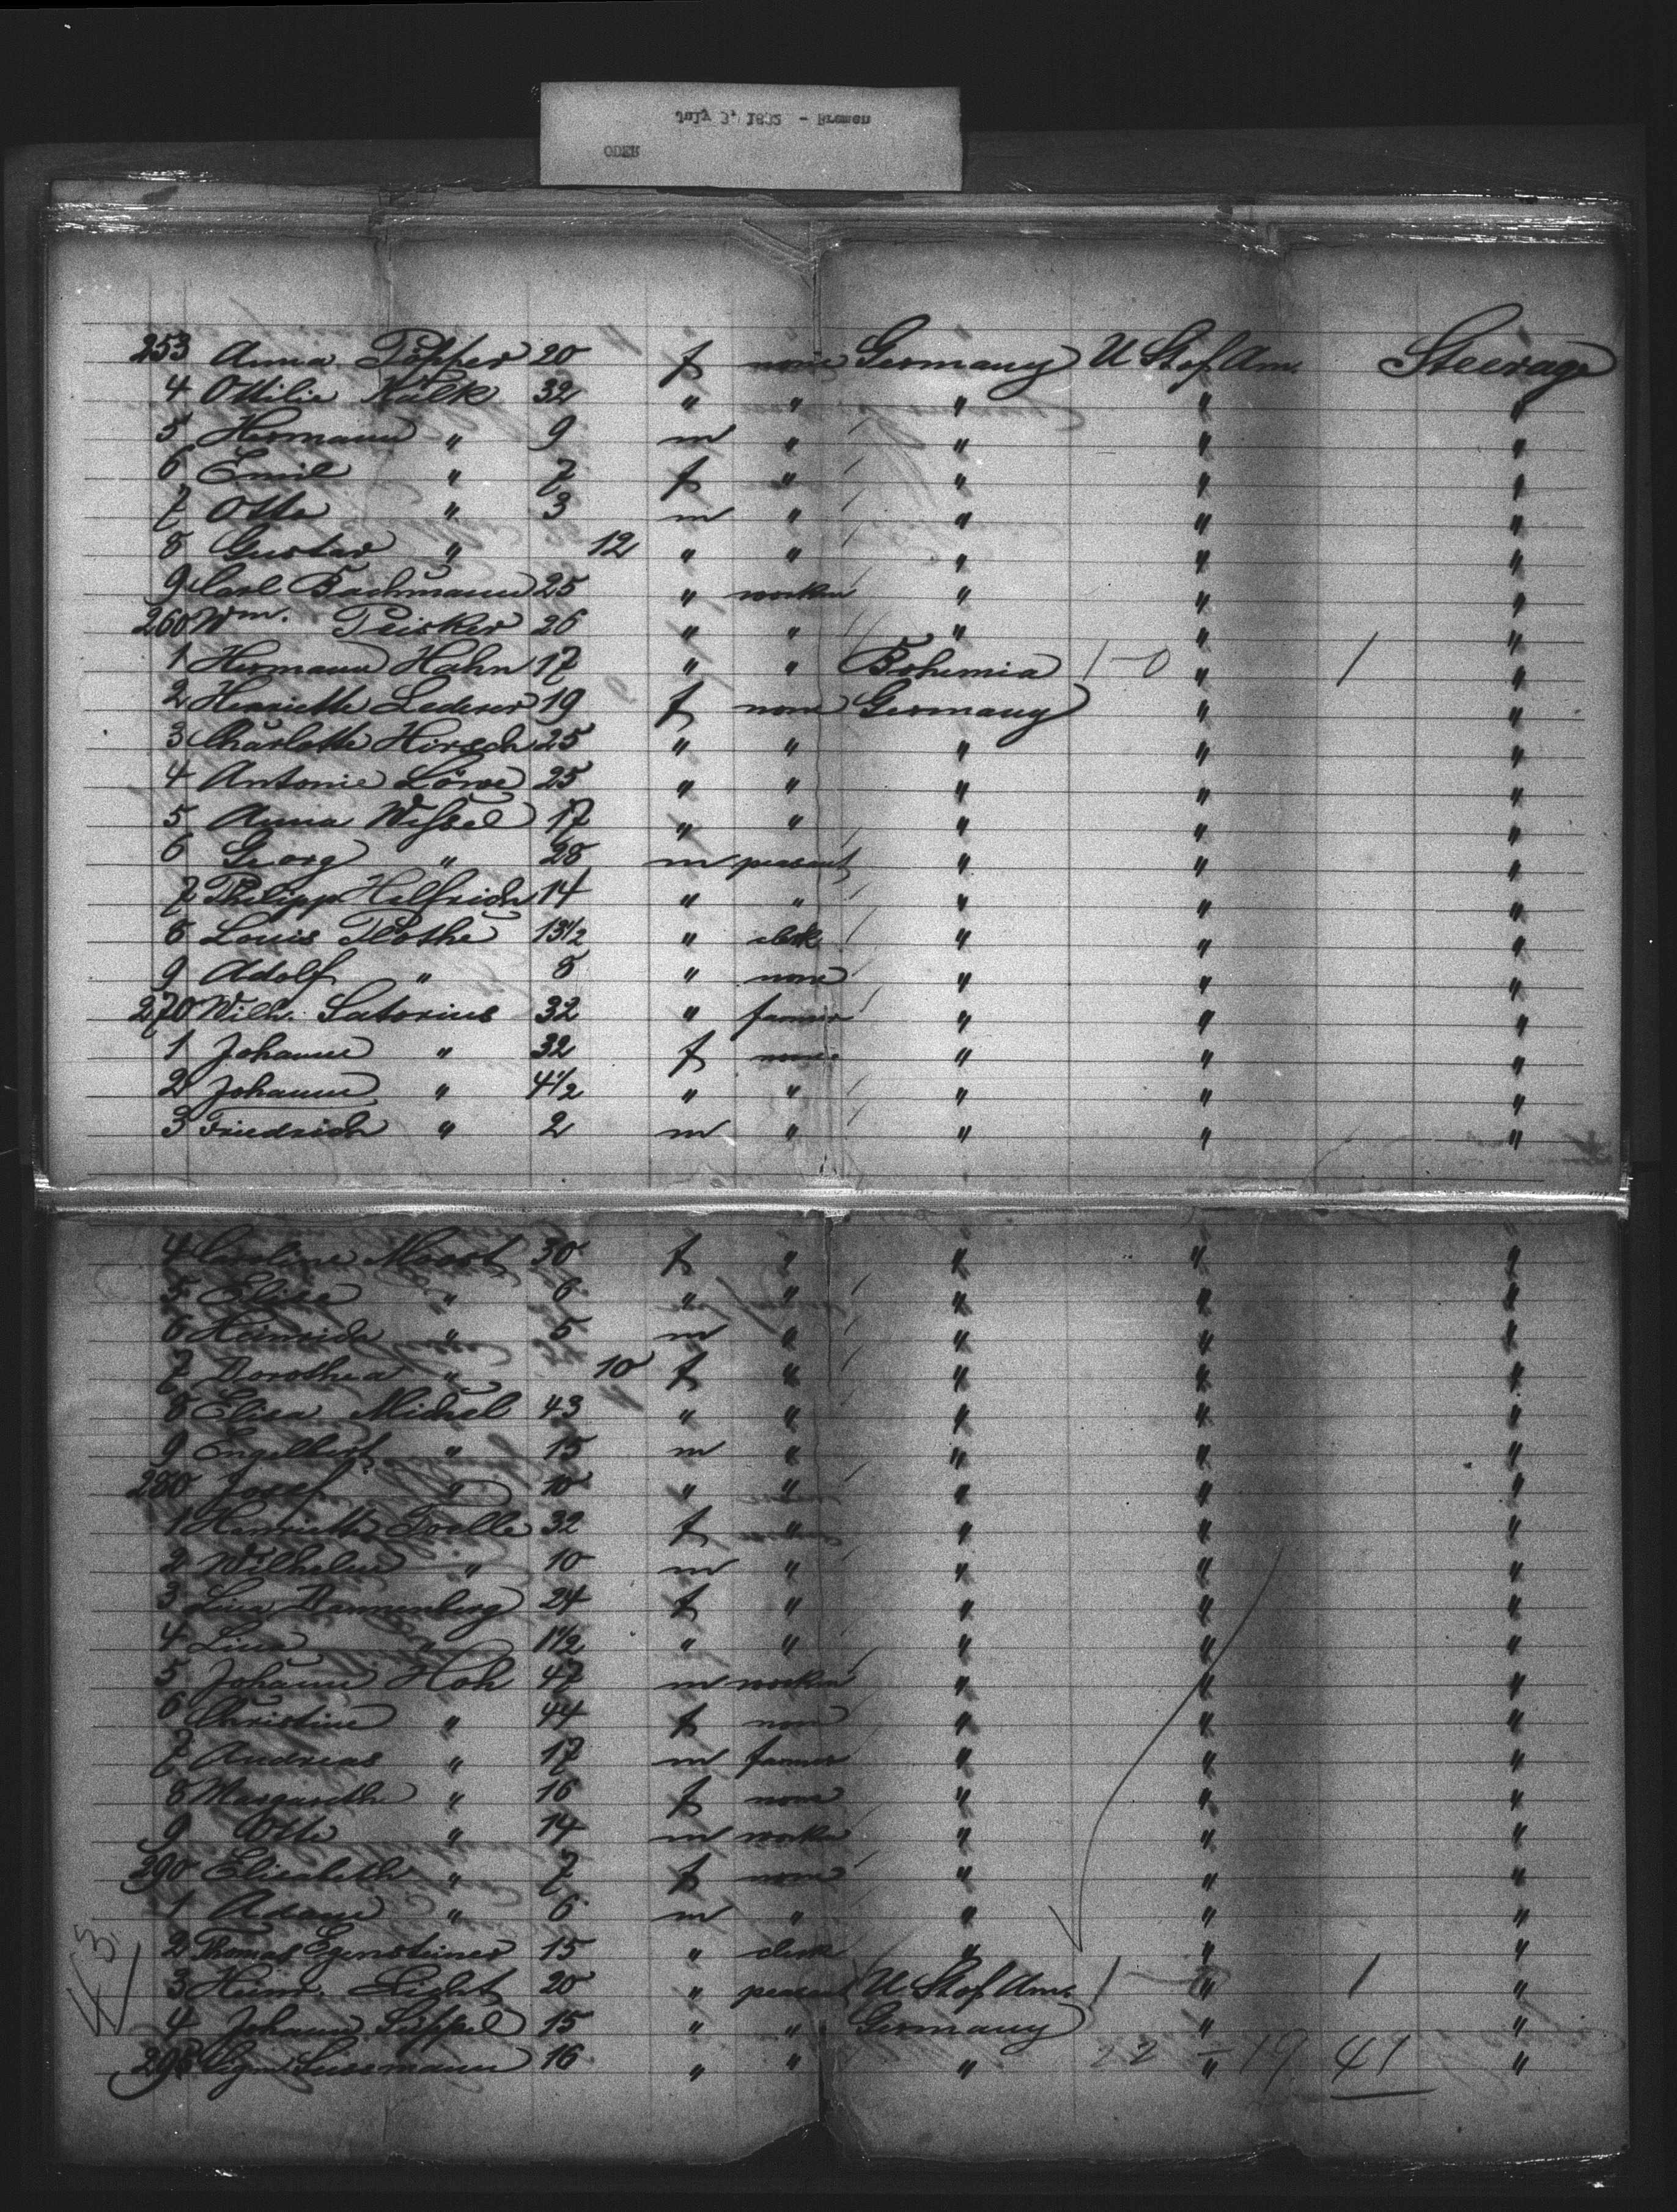 July 3, 1882 - Bremen
ODER
253 Anna Popper 20 f none Germany U St of Am. Steerage
4 Ottilie Kalk 32 " " " " "
5 Hermann " 9 m " " " "
6 Emil " 7 f " " " "
7 Otto " 3 m " " " "
8 Gustav " 12 " " " " "
9 Carl Bachmann 25 " worker " " "
260 Wm. 26 " " " " "
1 Hermann Hahn 17 " " Bohemia 1-0 " 1 "
2 Henriette Lederer 19 f none Germany " "
3 Charlotte Hirsch 25 " " " " "
4 Antonie Löwe 25 " " " " "
5 Anna Weßel 17 " " " " "
6 Georg " 28 m peasant " " "
7 Philipp Helfrich 14 " " " " "
8 Louis Plothe 13 1/2 " clerk " " "
9 Adolf " 8 " none " " "
270 Wilh. Satorius 32 " farmer " " "
1 Johanne " 32 f none " " "
2 Johanne " 4 1/2 " " " " "
3 Friedrich " 2 m " " " "
4 Caroline Moost 30 f " " " "
5 Elise " 6 " " " " "
6 Heinrich " 5 m " " " "
7 Dorothea " 10 f " " " "
8 Elisa Michel 43 " " " " "
9 Engelbert " 15 m " " " "
280 Josef " 10 " " " " "
1 Henriette Trelle 32 f " " " "
2 Wilhelm " 10 m " " " "
3 Lina Dannenberg 24 f " " " "
4 Lina " 1 1/2 " " " " "
5 Johann Hoh 47 m worker " " "
6 Christine " 44 f none " " "
7 Andreas " 17 m farmer " " "
8 Margarethe " 16 f none " " "
9 Otto " 14 m worker " " "
290 Elisabeth " 7 f none " " "
1 Adam " 6 m " " " "
2 Thomas Egensteiner 15 " clerk " " "
3 Heinr. Licht 20 " peasant U. St of Am. 1- " 1 "
4 Johann Süppel 15 " " Germany " "
295 Sigm Sussmann 16 " " " 22 - 19 " 41 "